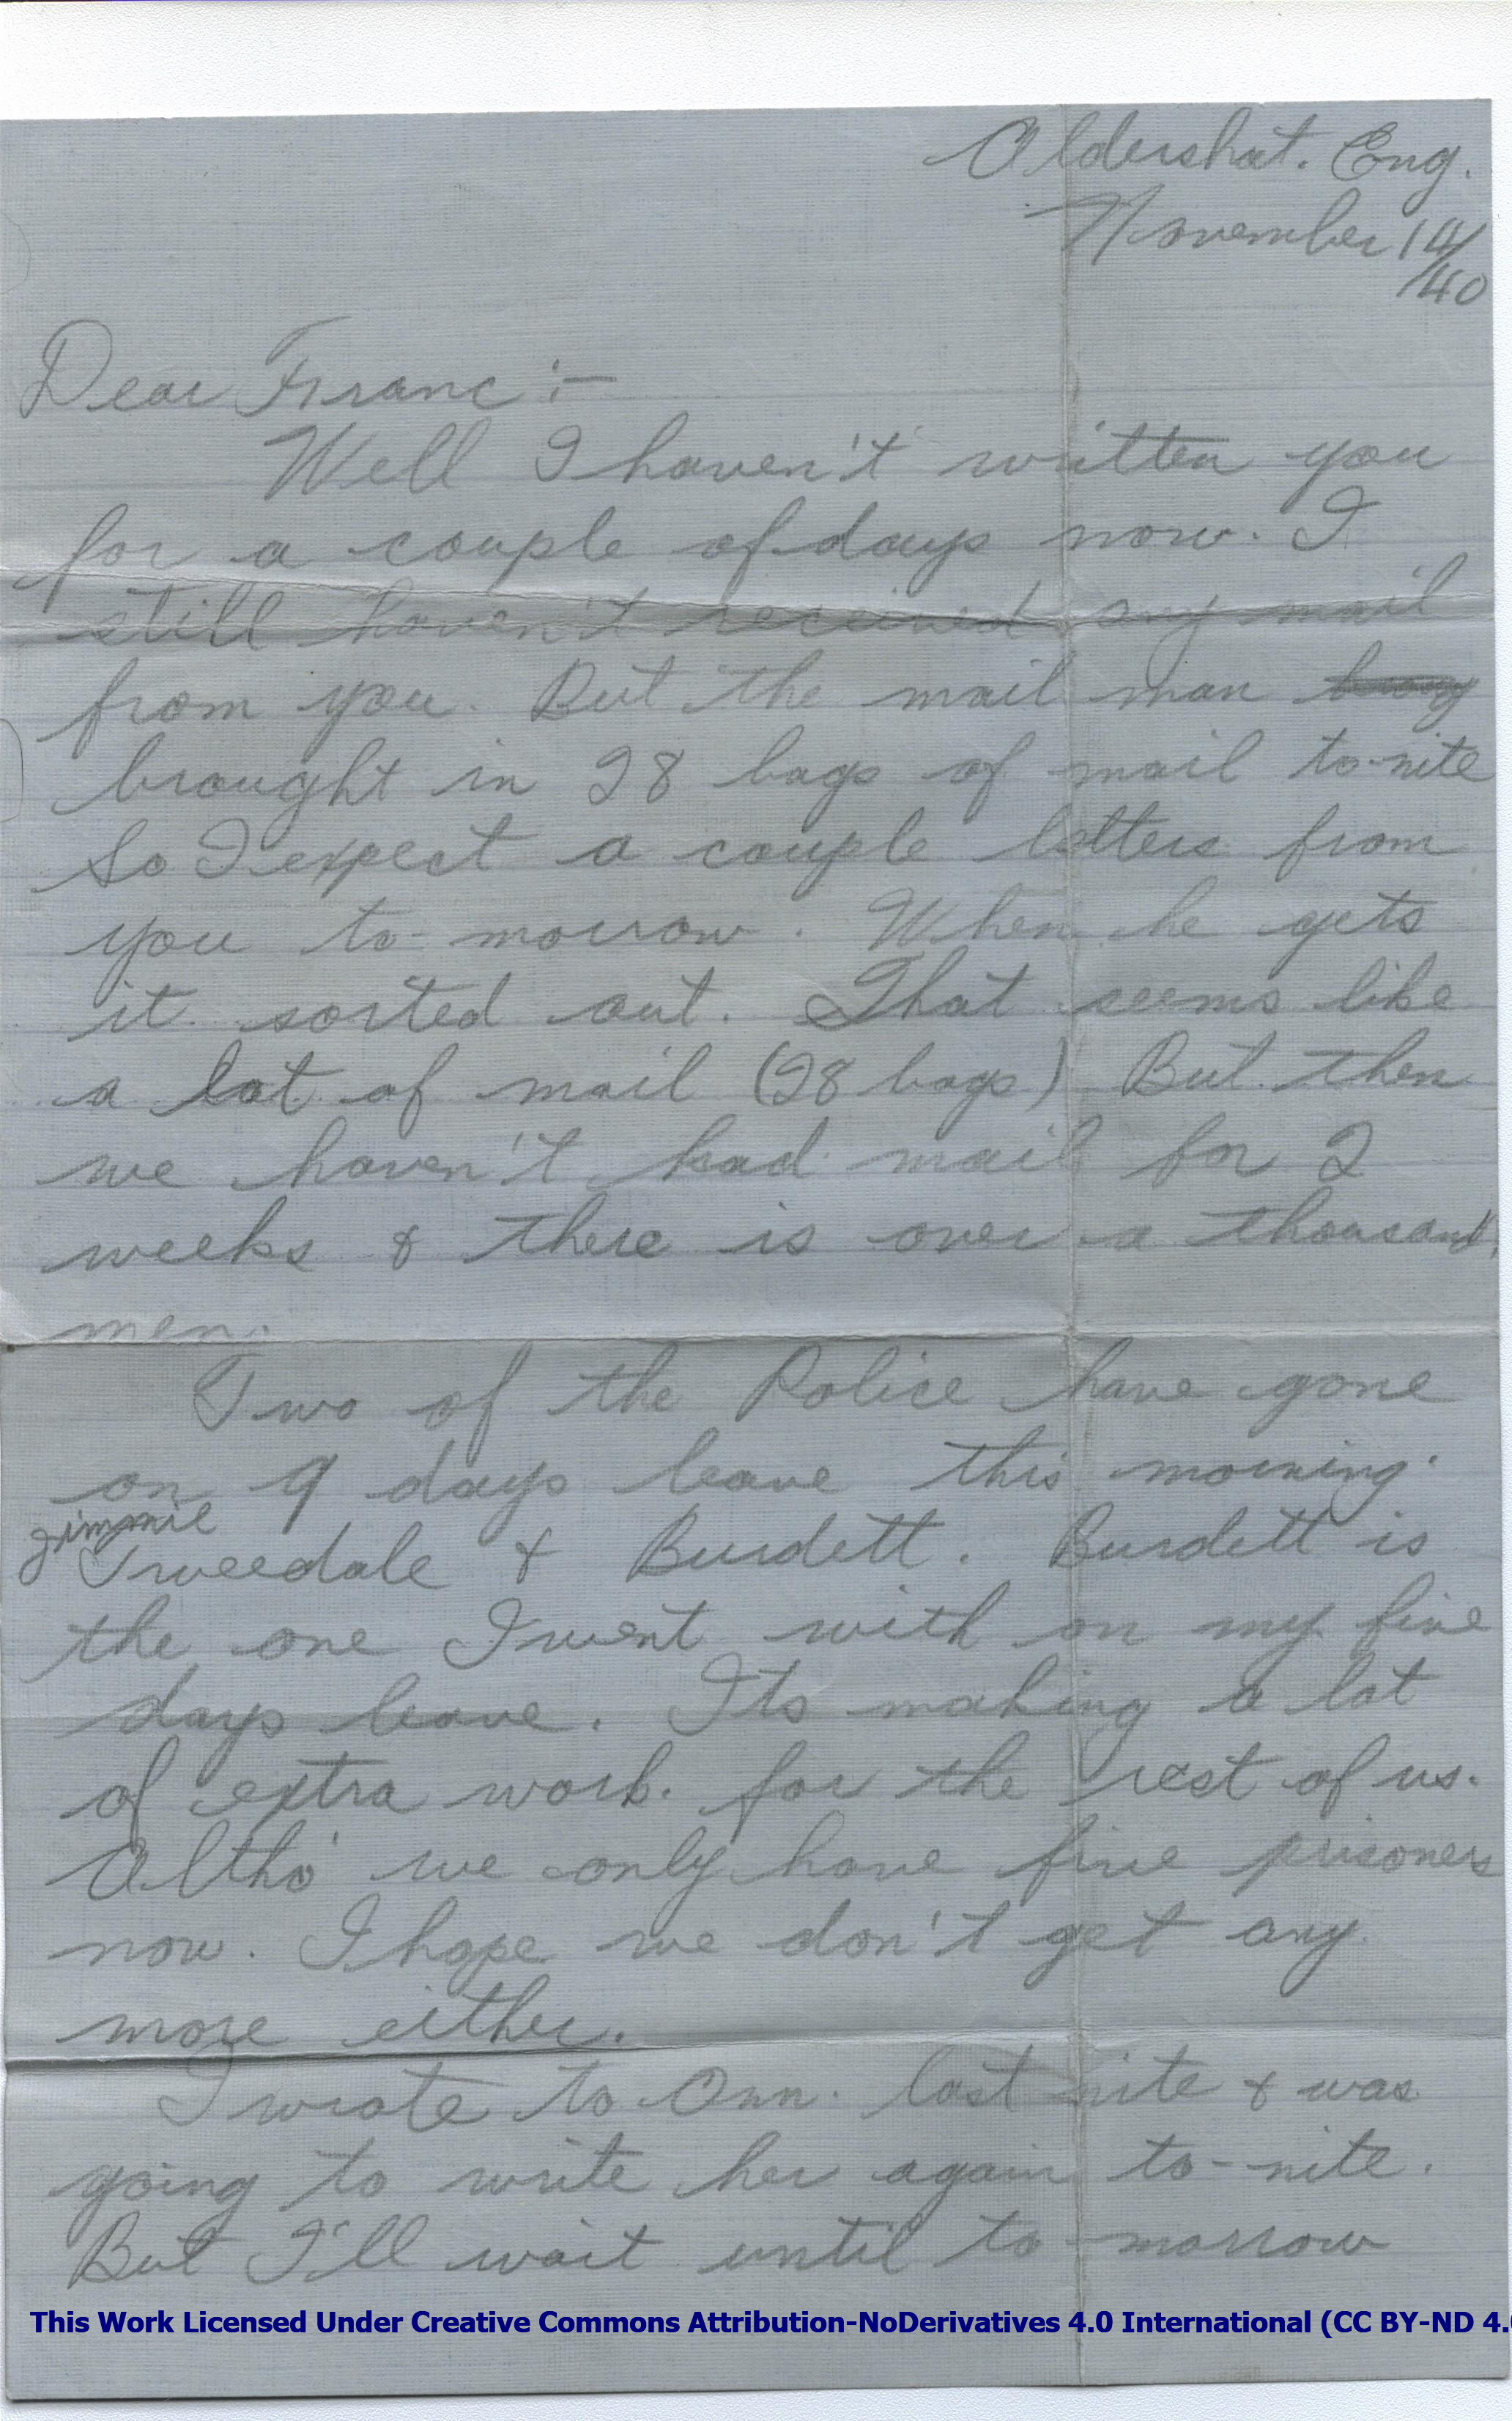 Aldershot. Eng.
November 14/40
Dear Franc:-
Well I haven't written you
for a couple of days now. I
still haven't received any mail
from you. But the mail man
brought in 28 bags of mail to-nite
So I expect a couple letters from
you to-morrow. When he gets
it sorted out. That seems like
a lot of mail (28 bags) But then
we haven't had mail for 2
weeks & there is over a thousand
men.
Two of the Police have gone
on 9 days leave this morning.
Jimmie
Tweedale & Burdett. Burdett is
the one I went with on my five
days leave. Its making a lot
of extra work. for the rest of us.
Altho' we only have five prisoners
now. I hope we don't get any
more either.
I wrote to Ann. last nite & was
going to write her again to-nite.
But I'll wait until to-morrow
This Work Licensed Under Creative Commons Attribution-NoDerivatives 4.0 International (CC BY-ND 4.